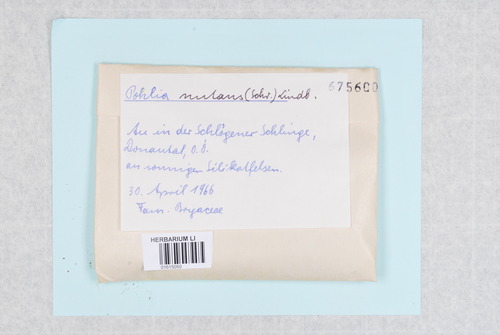 Pohlia nutans (Schr.) Lindb.
675600
Au in der Schlögener Schlinge,
Donautal, O.Ö.
an sonnigen Silikatfelsen.
30. April 1966
Fam. Bryaceae
HERBARIUM LI
01615050